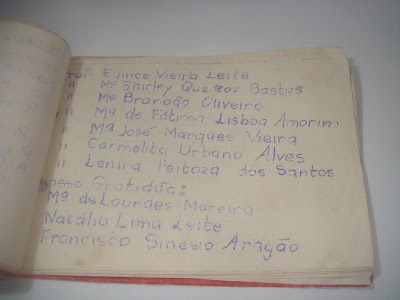 Prof. Eunice Vieira Leite
" Mª Shirley Queiroz Bastos
" Mª Brandão Oliveira
" Mª de Fátima Lisboa Amorim.
" Mª José Marques Vieira
" Carmelita Urbano Alves
" Lenira Feitoza dos Santos
Nosso Gratidão:
Mª de Lourdes Moreira
Natália Lima Leite
Francisco Sinesio Aragão